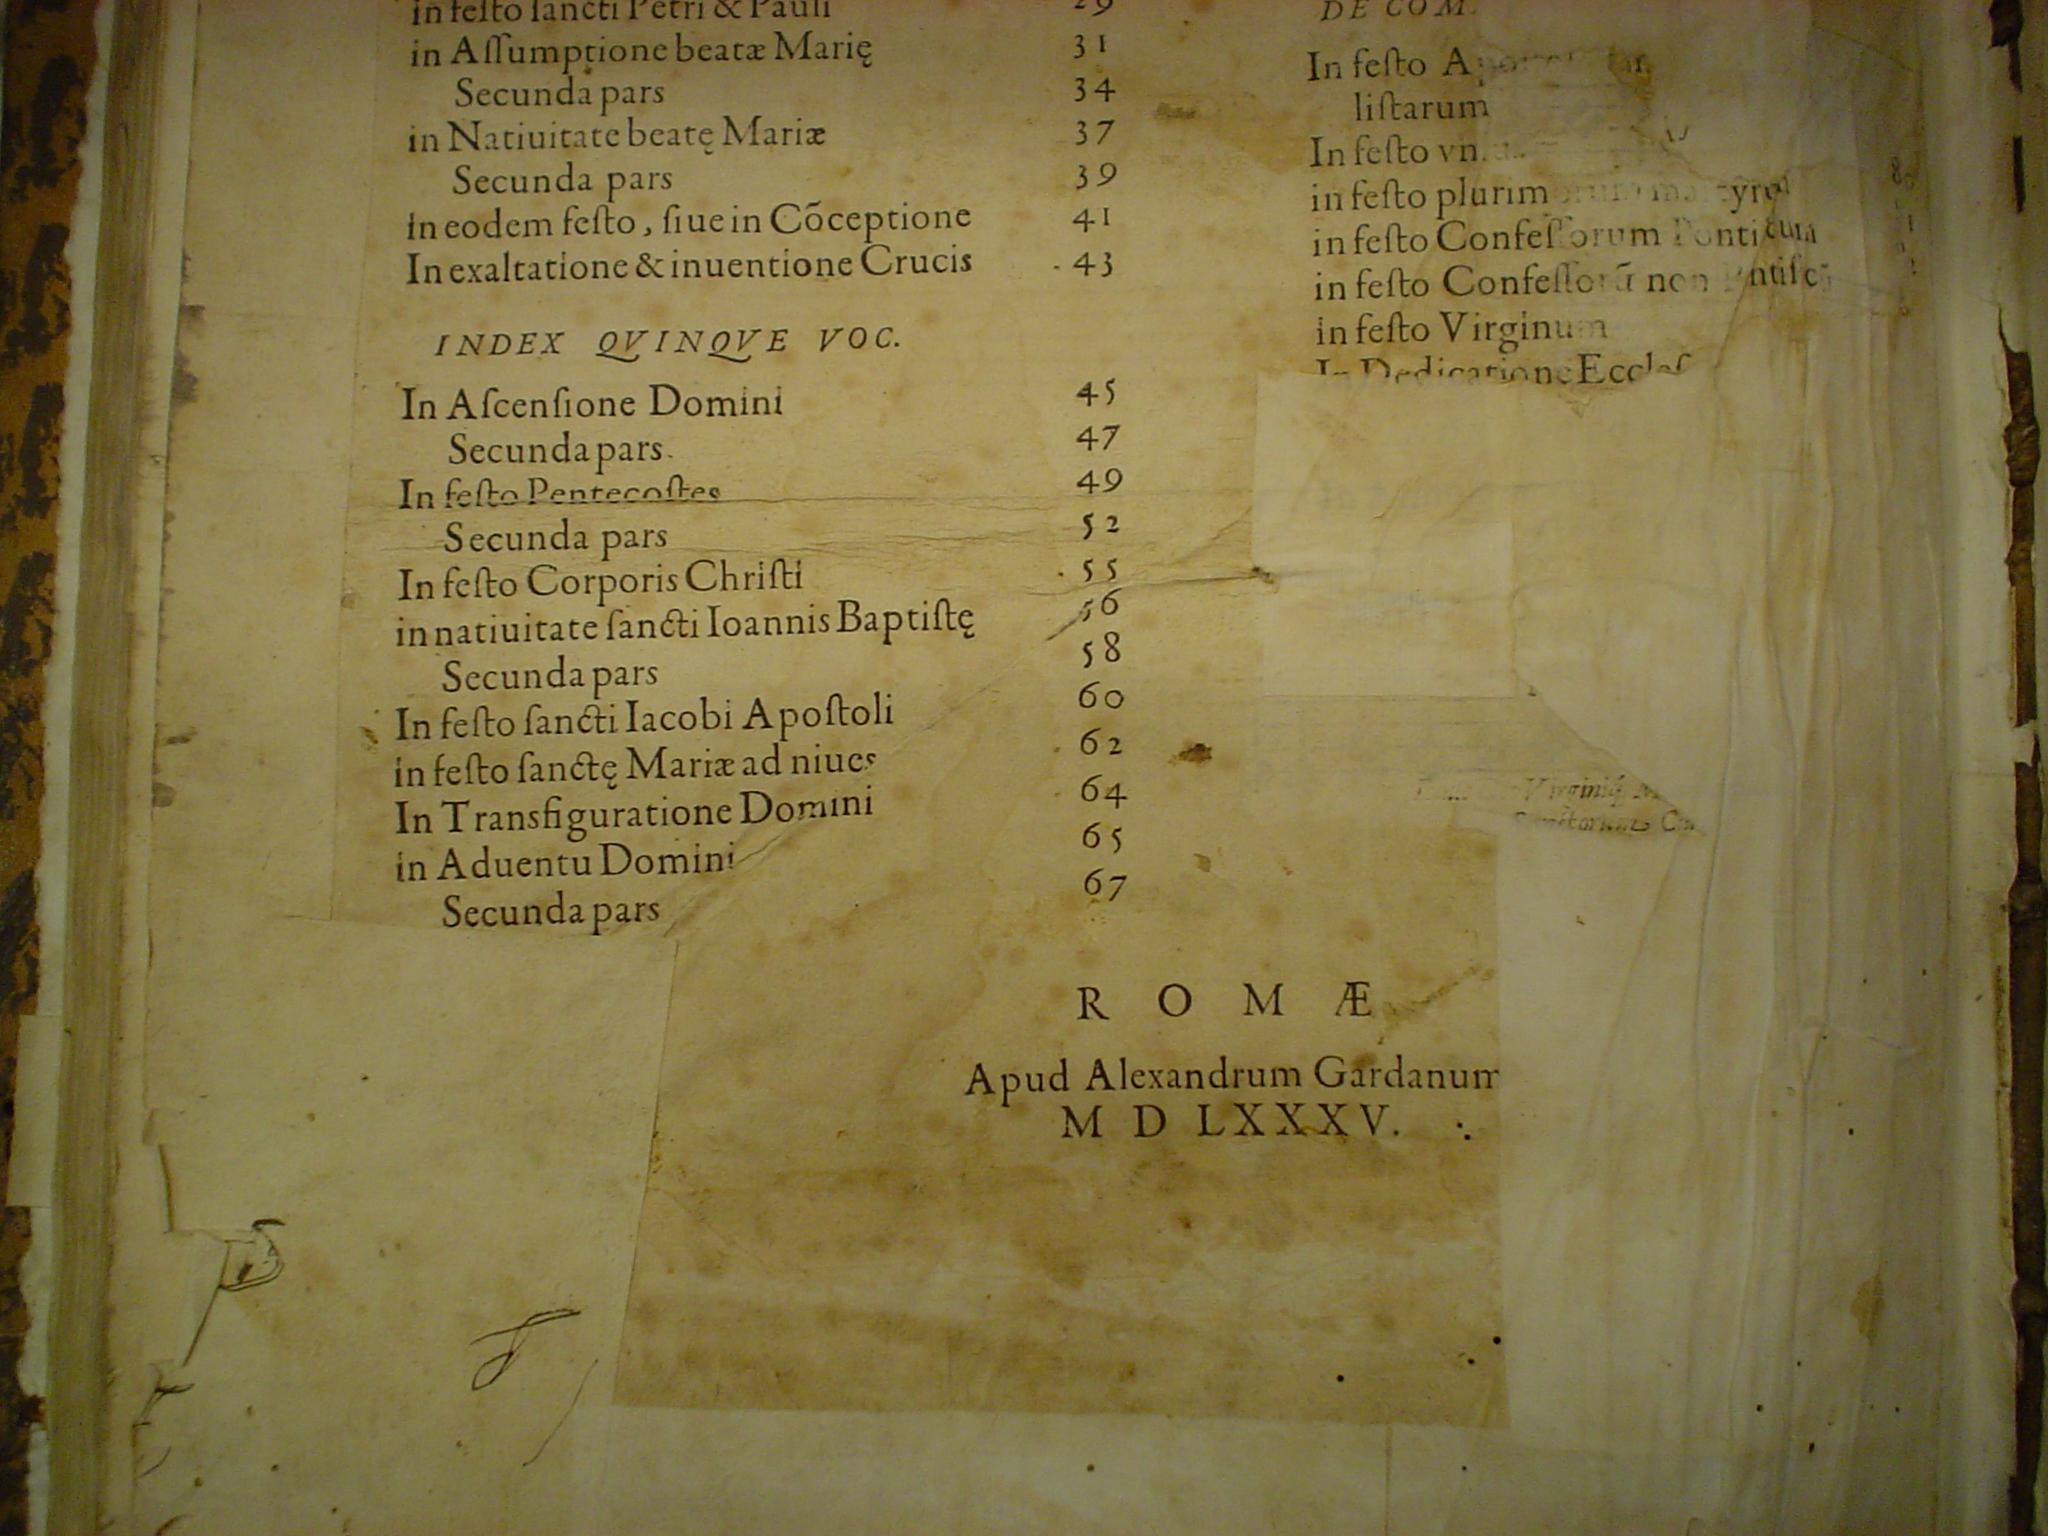 in feſto ſancti Petri & Pauli 29
in Aſſumptione beatæ Marię 31
Secunda pars 34
in Natiuitate beatę Mariæ 37
Secunda pars 39
in eodem feſto, ſiue in Cōceptione 41
In exaltatione & inuentione Crucis 43
INDEX QVINQVE VOC.
In Aſcenſione Domini 45
Secunda pars. 47
In feſto Pentecoſtes 49
Secunda pars 52
In feſto Corporis Chriſti 55
in natiuitate ſancti Ioannis Baptiſtę 56
Secunda pars 58
In feſto ſancti Iacobi Apoſtoli 60
in feſto ſanctę Mariæ ad niues 62
In Transfiguratione Domini 64
in Aduentu Domini 65
Secunda pars 67
DE COM.
In feſto
liſtarum
In feſto vn
in feſto plurimorum martyrū
in feſto Confeſſorum
in feſto Confeſſorū non
in feſto Virginum
In Dedicatione
ROMÆ
Apud Alexandrum Gardanum
M D LXXXV.